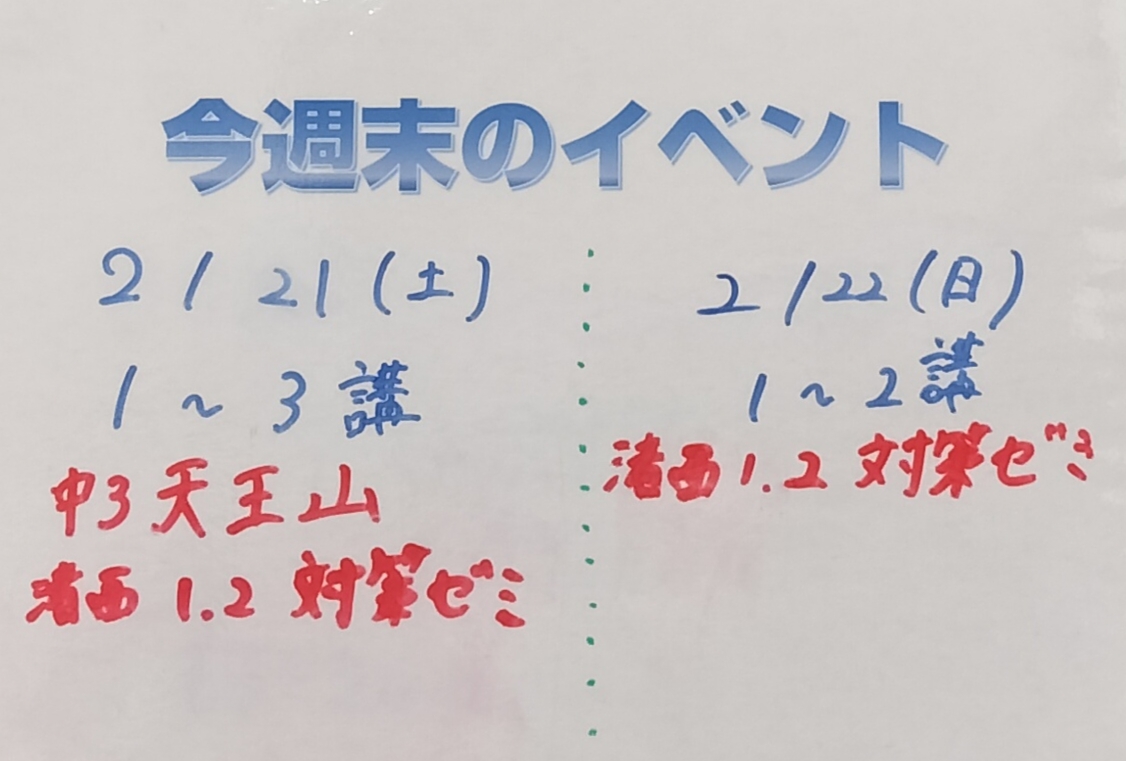 今週末のイベント
2/21(土)
1～3講
中3天王山
渚西1.2 対策ゼミ
2/22(日)
1～2講
渚西1.2 対策ゼミ